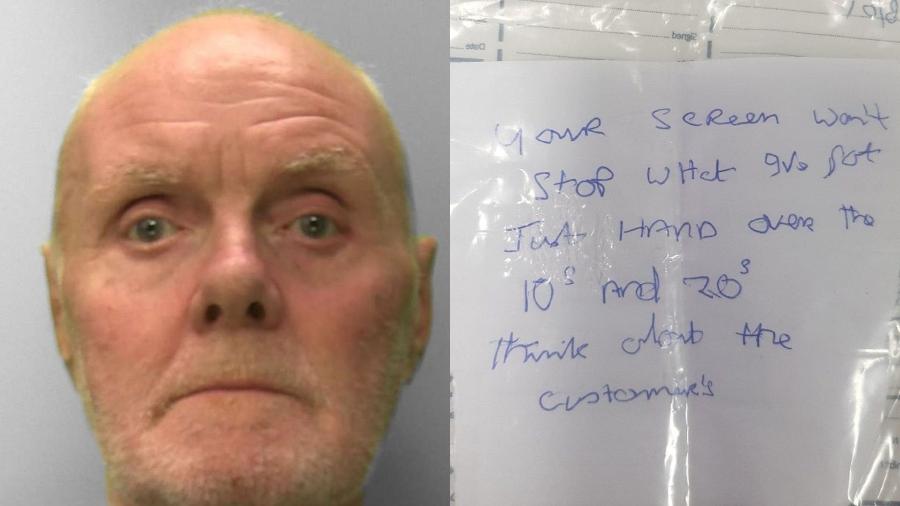 Signed
Date
your screen won't
stop what ive got
Just HAND over the
10s And 20s
think about the
customer's